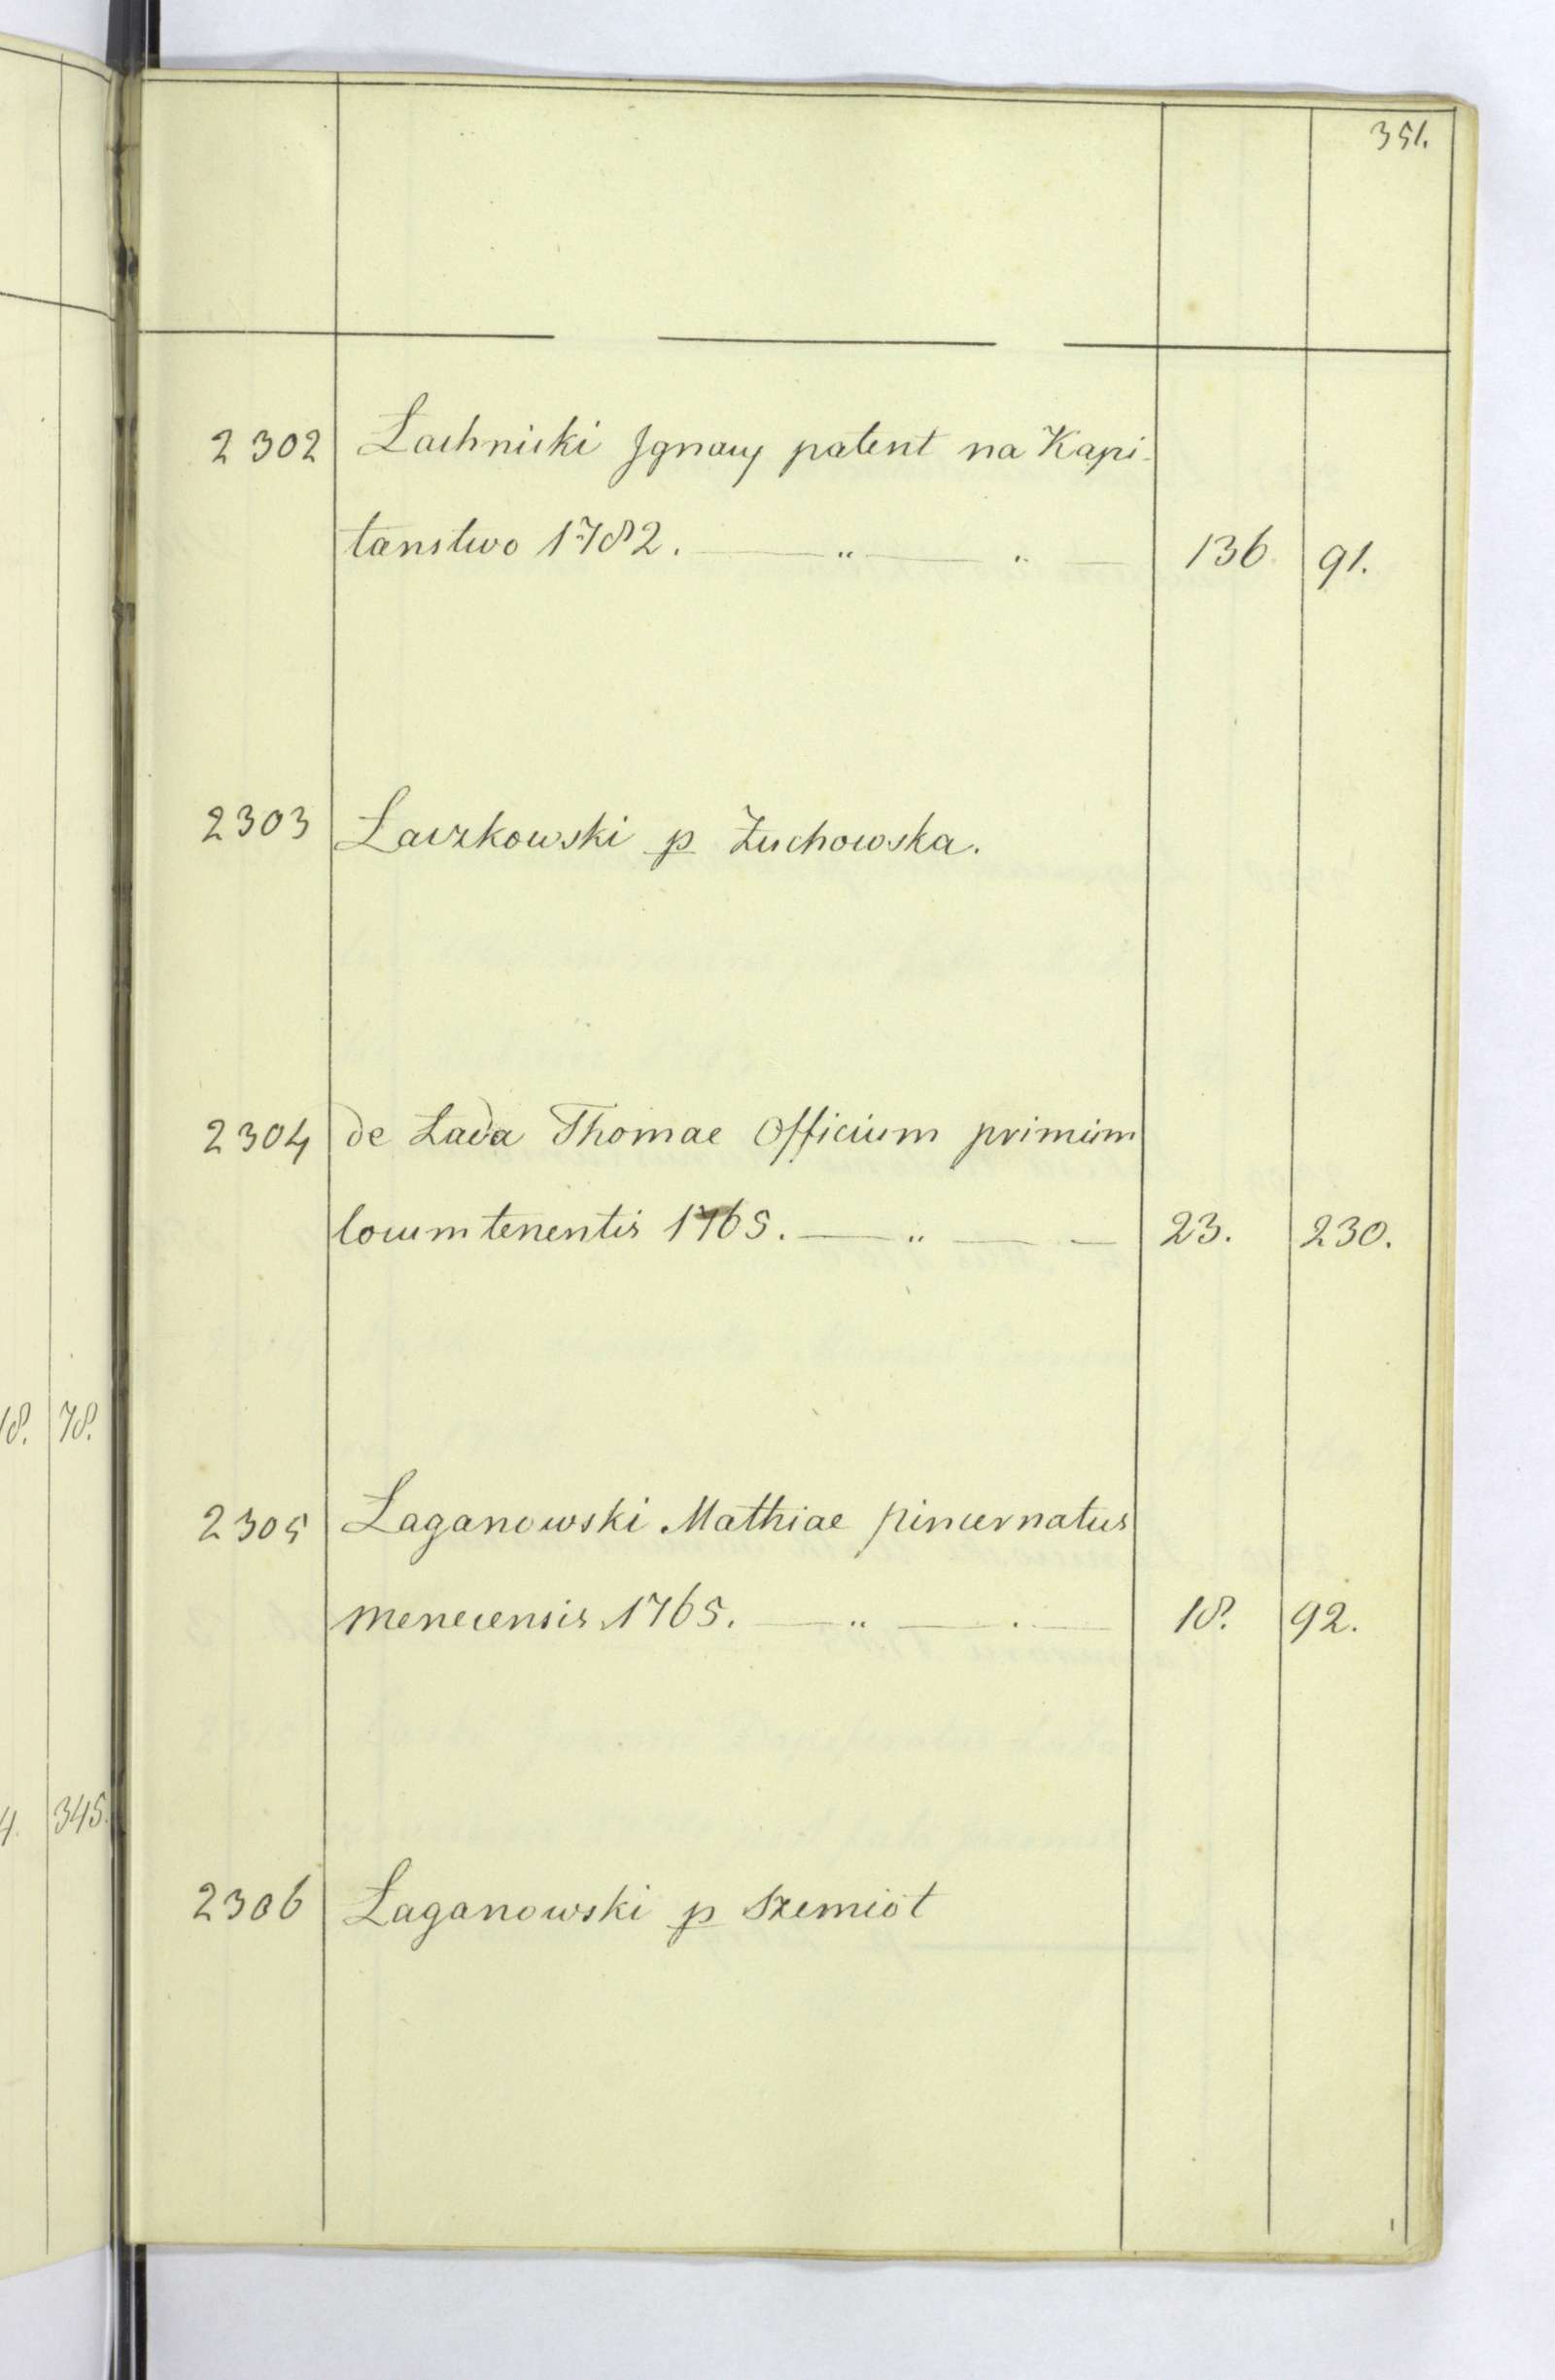 351.
2302 Łachnicki Jgnacy patent na Kapi-
tanstwo 1782. — „ — „ — 136. 91.
2303 Łaczkowski p Żuchowska.
2304 de Łada Thomae Officium primum
locum tenentis 1765. — „ — — 23. 230.
2305 Łaganowski Mathiae pincernatus
menecensis 1765. — „ — . — 18. 92.
2306 Łaganowski p Szemiot
18. 78.
4. 345.